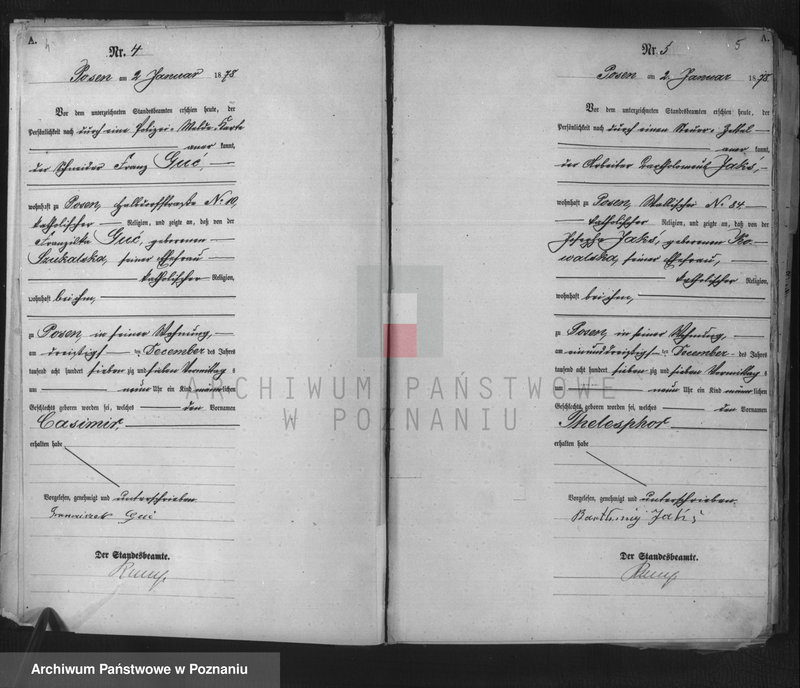 A.
4
Nr. 4
Posen am 2 Januar 1878
Vor dem unterzeichneten Standesbeamten erschien heute, der
Persönlichkeit nach durch eine Polizei-Melde-Karte
aner kannt,
der Schneider Franz Guć,
wohnhaft zu Posen, Halldorfstraße No 10,
katholischer Religion, und zeigte an, daß von der
Franziska Guć, geborenen
Szukalska, seiner Ehefrau
katholischer Religion,
wohnhaft bei ihm,
zu Posen, in seiner Wohnung,
am dreißigsten December des Jahres
tausend acht hundert sieben zig und sieben Vormittags
um neun Uhr ein Kind männlichen
Geschlechts geboren worden sei, welches den Vornamen
Casimir,
erhalten habe
Vorgelesen, genehmigt und unterschrieben
Franciszek Guć
Der Standesbeamte.
A.
5
Nr. 5
Posen am 2 Januar 1878
Vor dem unterzeichneten Standesbeamten erschien heute, der
Persönlichkeit nach durch einen Steuer-Zettel
aner kannt,
der Arbeiter Bartholomäus Jakś,
wohnhaft zu Posen, Wallischei No 84.
katholischer Religion, und zeigte an, daß von der
Josepha Jakś, geborenen Ko-
walska, seiner Ehefrau,
katholischer Religion,
wohnhaft bei ihm,
zu Posen, in seiner Wohnung,
am einunddreißigsten December des Jahres
tausend acht hundert sieben zig und sieben Vormittags
um neun Uhr ein Kind männlichen
Geschlechts geboren worden sei, welches den Vornamen
Thelesphor
erhalten habe
Vorgelesen, genehmigt und unterschrieben
Der Standesbeamte.
ARCHIWUM PAŃSTWOWE
W POZNANIU
Archiwum Państwowe w Poznaniu